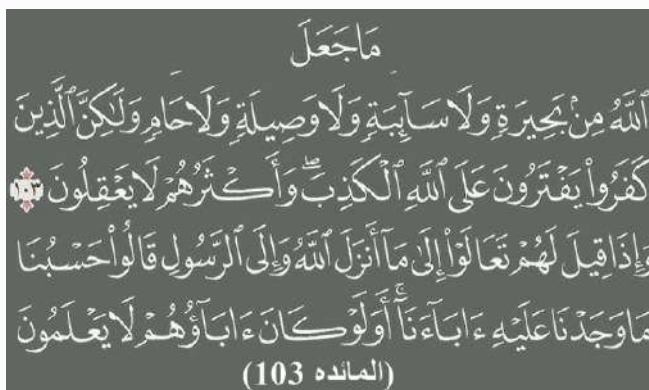 مَا جَعَلَ
ٱللَّهُ مِنۢ بَحِيرَةٍ وَلَا سَآئِبَةٍ وَلَا وَصِيلَةٍ وَلَا حَامٍ وَلَٰكِنَّ ٱلَّذِينَ
كَفَرُوا۟ يَفْتَرُونَ عَلَى ٱللَّهِ ٱلْكَذِبَ ۖ وَأَكْثَرُهُمْ لَا يَعْقِلُونَ ١٠٣
وَإِذَا قِيلَ لَهُمْ تَعَالَوْا۟ إِلَىٰ مَآ أَنزَلَ ٱللَّهُ وَإِلَى ٱلرَّسُولِ قَالُوا۟ حَسْبُنَا
مَا وَجَدْنَا عَلَيْهِ ءَابَآءَنَآ ۚ أَوَلَوْ كَانَ ءَابَآؤُهُمْ لَا يَعْلَمُونَ
(المائده 103)